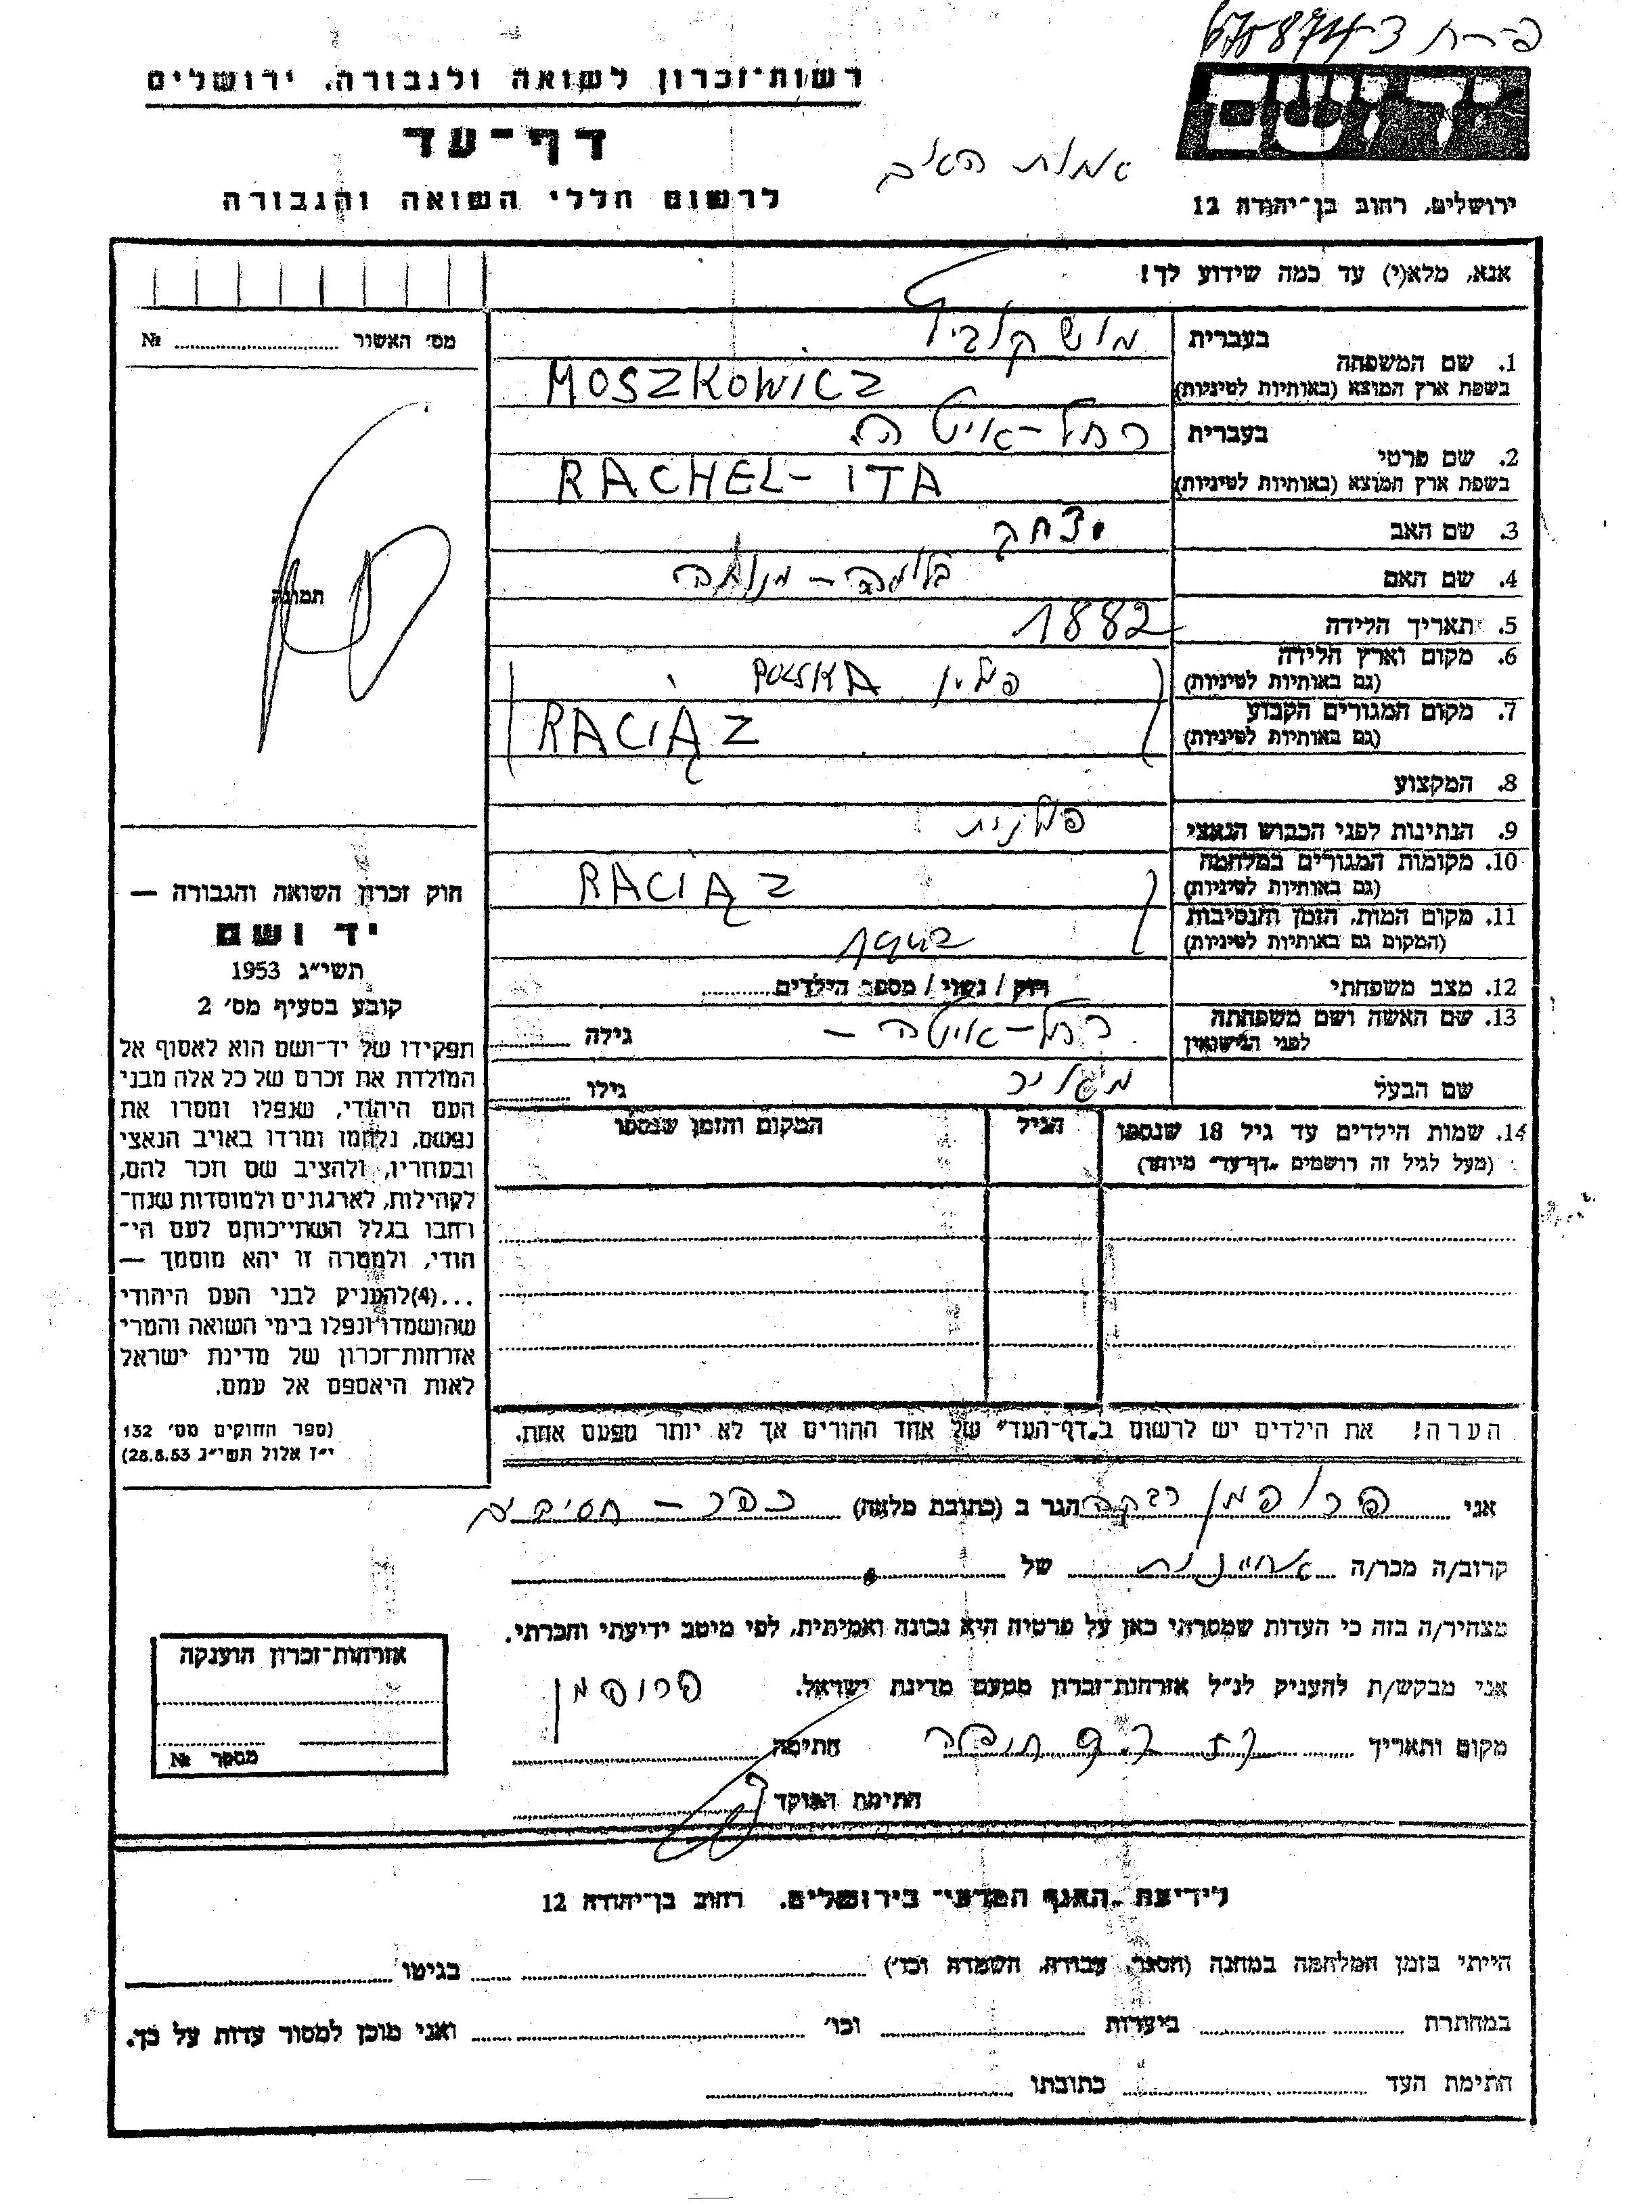 פ-ח 675874-3
רשות־זכרון לשואה ולגבורה, ירושלים
יד ושם
דף־עד
לרשום חללי השואה והגבורה
ירושלים, רחוב בן־יהודה 12
אנא, מלא(י) עד כמה שידוע לך!
מס׳ האשור № 
בעברית מושקוביץ
1. שם המשפחה
בשפת ארץ המוצא (באותיות לטיניות) MOSZKOWICZ
בעברית רחל-איטה
2. שם פרטי
בשפת ארץ המוצא (באותיות לטיניות) RACHEL-ITA
3. שם האב יצחק
4. שם האם בלומה - מנוחה
5. תאריך הלידה 1882
6. מקום וארץ הלידה
(גם באותיות לטיניות) פולין POLSKA
7. מקום המגורים הקבוע
(גם באותיות לטיניות) RACIĄZ
תמונה
8. המקצוע
9. הנתינות לפני הכבוש הנאצי פולנית
10. מקומות המגורים במלחמה
(גם באותיות לטיניות) RACIĄZ
11. מקום המות, הזמן והנסיבות
(המקום גם באותיות לטיניות)
12. מצב משפחתי רווק / נשוי / מספר הילדים
13. שם האשה ושם משפחתה
לפני הנישואין רחל-איטה - גילה
שם הבעל גילו
14. שמות הילדים עד גיל 18 שנספו הגיל המקום והזמן שנספו
(מעל לגיל זה רושמים "דף־עד" מיוחד)
חוק זכרון השואה והגבורה —
יד ושם
תשי״ג 1953
קובע בסעיף מס׳ 2
תפקידו של יד־ושם הוא לאסוף אל
המולדת את זכרם של כל אלה מבני
העם היהודי, שנפלו ומסרו את
נפשם, נלחמו ומרדו באויב הנאצי
ובעוזריו, ולהציב שם וזכר להם,
לקהילות, לארגונים ולמוסדות שנח־
רחבו בגלל השתייכותם לעם הי־
הודי, ולמטרה זו יהא מוסמך —
...(4)להעניק לבני העם היהודי
שהושמדו ונפלו בימי השואה והמרי
אזרחות־זכרון של מדינת ישראל
לאות היאספם אל עמם.
(ספר החוקים מס׳ 132
י״ז אלול תשי״ג 28.8.53)
הערה! את הילדים יש לרשום ב"דף־העד" של אחד ההורים אך לא יותר מפעם אחת.
אני פרופמן רבקה הגר ב (כתובת מלאה) כפר - חסידים
קרוב/ה מכר/ה אחיינית של
מצהיר/ה בזה כי העדות שמסרתי כאן על פרטיה היא נכונה ואמיתית, לפי מיטב ידיעתי והכרתי.
אני מבקש/ת להעניק לנ״ל אזרחות־זכרון מטעם מדינת ישראל. פרופמן
מקום ותאריך חתימה
חתימת הפוקד
אזרחות־זכרון הוענקה
מספר №
לידיעת "האגף המדעי" בירושלים, רחוב בן־יהודה 12
הייתי בזמן המלחמה במחנה (הסגר, עבודה, השמדה וכו׳) בגיטו
במחתרת ביערות וכו׳ ואני מוכן למסור עדות על כך.
חתימת העד כתובתו